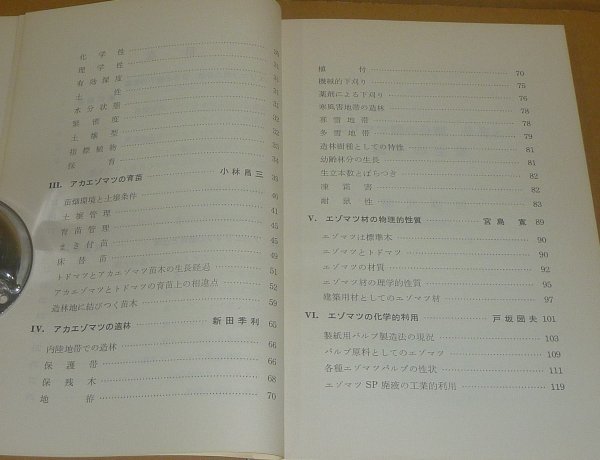 化学性 30
理学性 31
有効深度 31
土性 31
水分状態
堅密度 33
土壌型 33
指標植物
保育
III. アカエゾマツの育苗 小林昌三
苗畑環境と土壌条件
土壌管理 40
育苗管理 41
まき付苗 45
床替苗 45
トドマツとアカエゾマツ苗木の生長経過 51
アカエゾマツとトドマツの育苗上の相違点 52
造林地に結びつく苗木 59
IV. アカエゾマツの造林 新田季利 65
内陸地帯での造林 66
保護帯 66
保残木 68
地拵 70
植付 70
機械的下刈り 75
薬剤による下刈り 76
寒風害地帯の造林 78
雅雪地帯 78
多雪地帯 79
造林樹種としての特性 81
幼齢林分の生長 81
生立本数とばらつき 82
凍霜害 82
耐鼠性 83
V. エゾマツ材の物理的性質 宮島寛 89
エゾマツは標準木 90
エゾマツとトドマツ 90
エゾマツの材質 92
エゾマツ材の理学的性質 95
建築用材としてのエゾマツ材 97
VI. エゾマツの化学的利用 戸坂圀夫 101
製紙用パルプ製造法の現況 103
パルプ原料としてのエゾマツ 109
各種エゾマツパルプの性状 111
エゾマツ SP 廃液の工業的利用 119